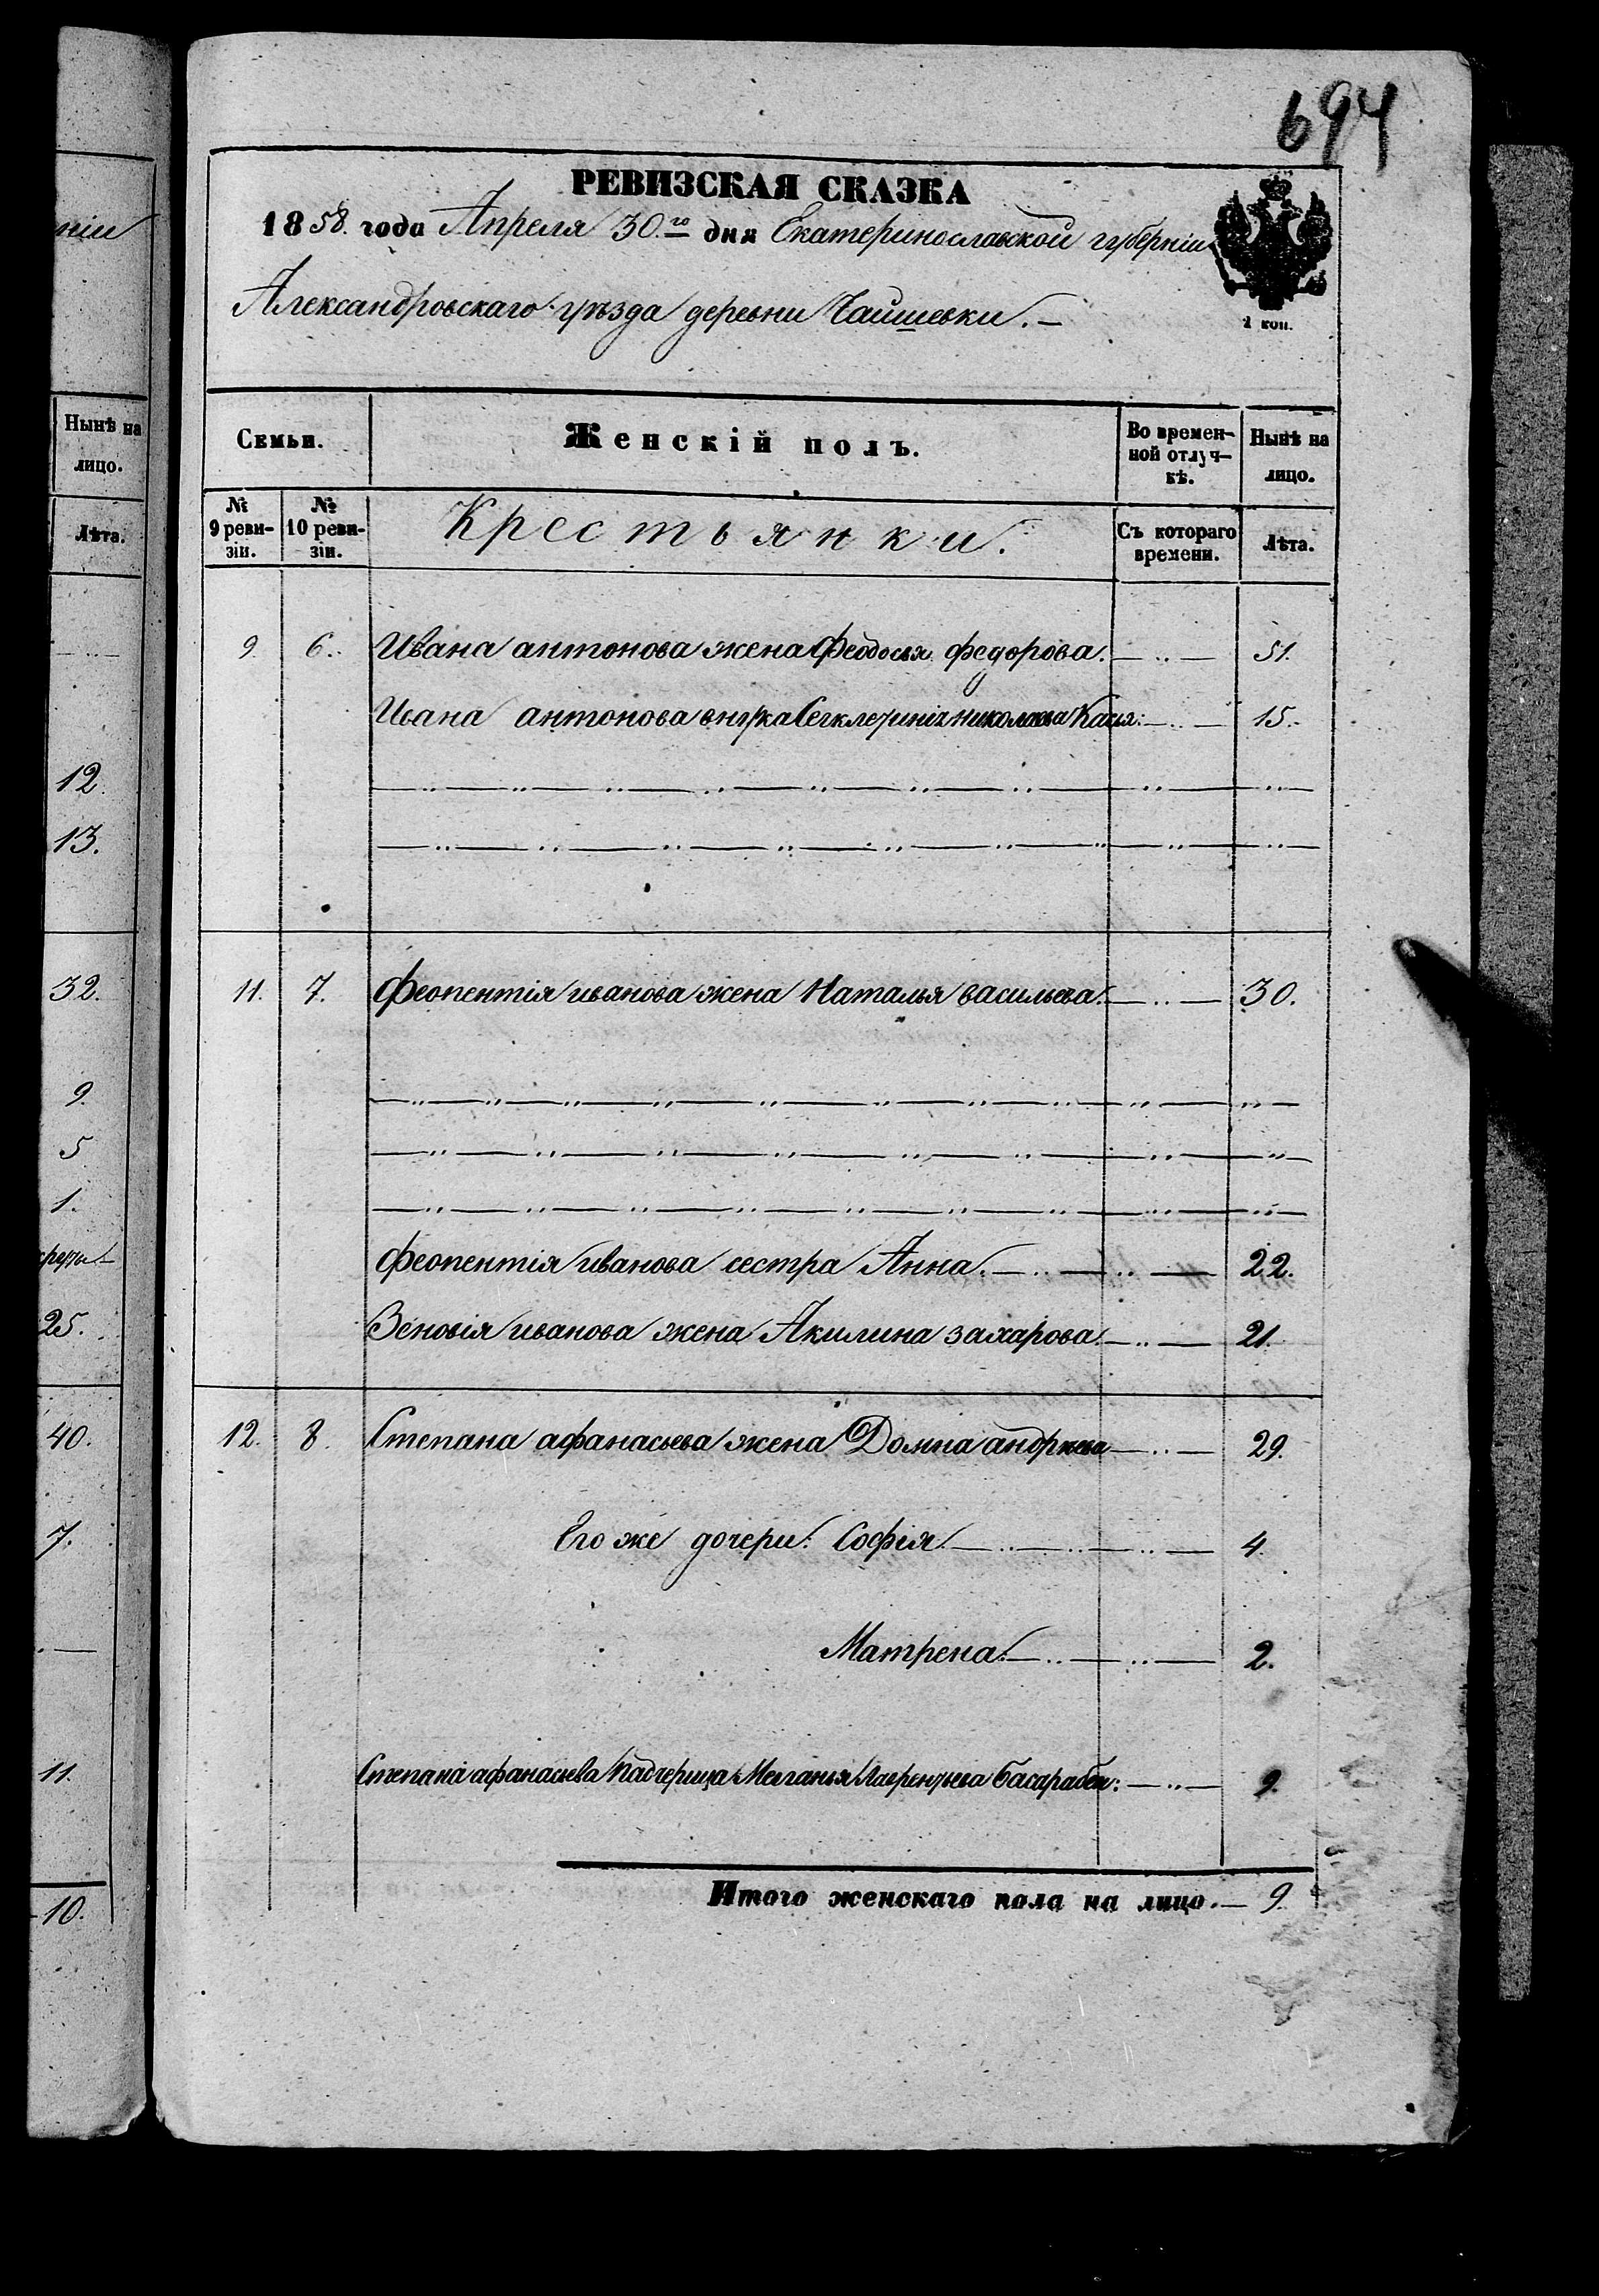 694
РЕВИЗСКАЯ СКАЗКА
1858. года Апреля 30.го дня Екатеринославской губерніи
Александровскаго уѣзда деревни Чаишевки.
1 коп.
ніи
Нынѣ на
лицо.
Лѣта.
12.
13.
32.
9.
5
1.
25.
40.
7.
11.
10.
Семьи.
Женскій полъ.
Во времен-
ной отлуч-
кѣ.
Нынѣ на
лицо.
№
9 реви-
зіи.
№
10 реви-
зіи.
Крестьянки.
Съ котораго
времени.
Лѣта.
9. 6. Ивана антонова жена Феодосья федорова. 51.
Ивана антонова внучка николаева 15.
11. 7. Феопентія иванова жена Наталья васильева. 30.
Феопентія иванова сестра Анна. 22.
Зеновія иванова жена Акилина захарова. 21.
12. 8. Степана афанасьева жена Домна андреева 29.
Его же дочери: Софія 4.
Матрена. 2.
Степана афанасьева падчерица Меланья Лаврентьева 9.
Итого женскаго пола на лицо. 9.